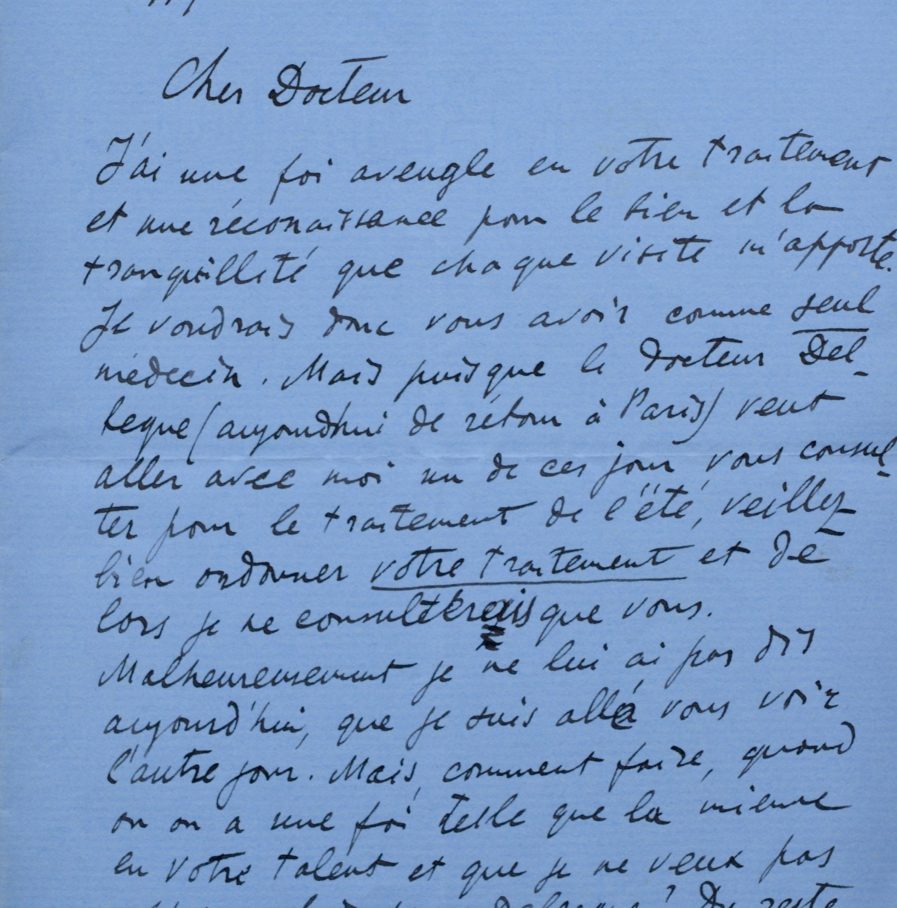 Cher Docteur
J'ai une foi aveugle en votre traitement
et une réconaissance pour le bien et la
tranquillité que chaque visite m'apporte.
Je voudrais donc vous avoir comme seul
médecin. Mais puisque le docteur Del-
beque (aujourdhui de rétour à Paris) veut
aller avec moi un de ces jour vous consul-
ter pour le traitement de l'été, veillez
bien ordonner votre traitement et dé
lors je ne consulterais que vous.
Malheureusement je ne lui ai pas dit
aujourd'hui, que je suis allé vous voir
l'autre jour. Mais, comment faire, quand
on on a une foi telle que la mienne
en votre talent et que je ne veux pas
Du reste